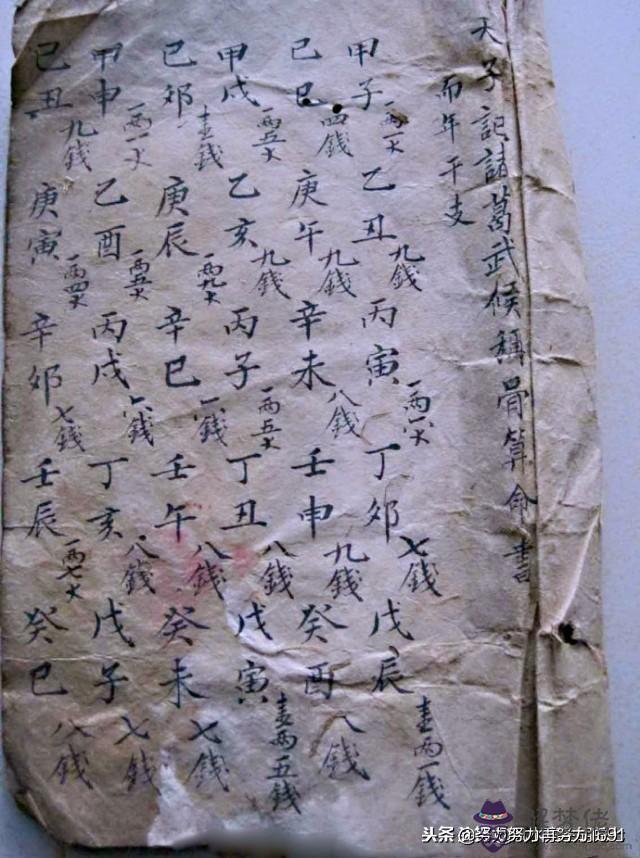 天子記諸葛武候稱骨算命書
而年干支
甲子 乙丑 九錢 丙寅 丁卯 七錢 戊辰 壹两一錢
己巳 四錢 庚午 九錢 辛未 八錢 壬申 九錢 癸酉 八錢
甲戌 一两五 乙亥 九錢 丙子 一两五 丁丑 八錢 戊寅 壹两五錢
己卯 壹錢 庚辰 一两九 辛巳 錢 壬午 八錢 癸未 七錢
甲申 一两一 乙酉 一两五 丙戌 六錢 丁亥 八錢 戊子 七錢
己丑 九錢 庚寅 一两四 辛卯 七錢 壬辰 一两七 癸巳 八錢
头条 @努力努力再努力